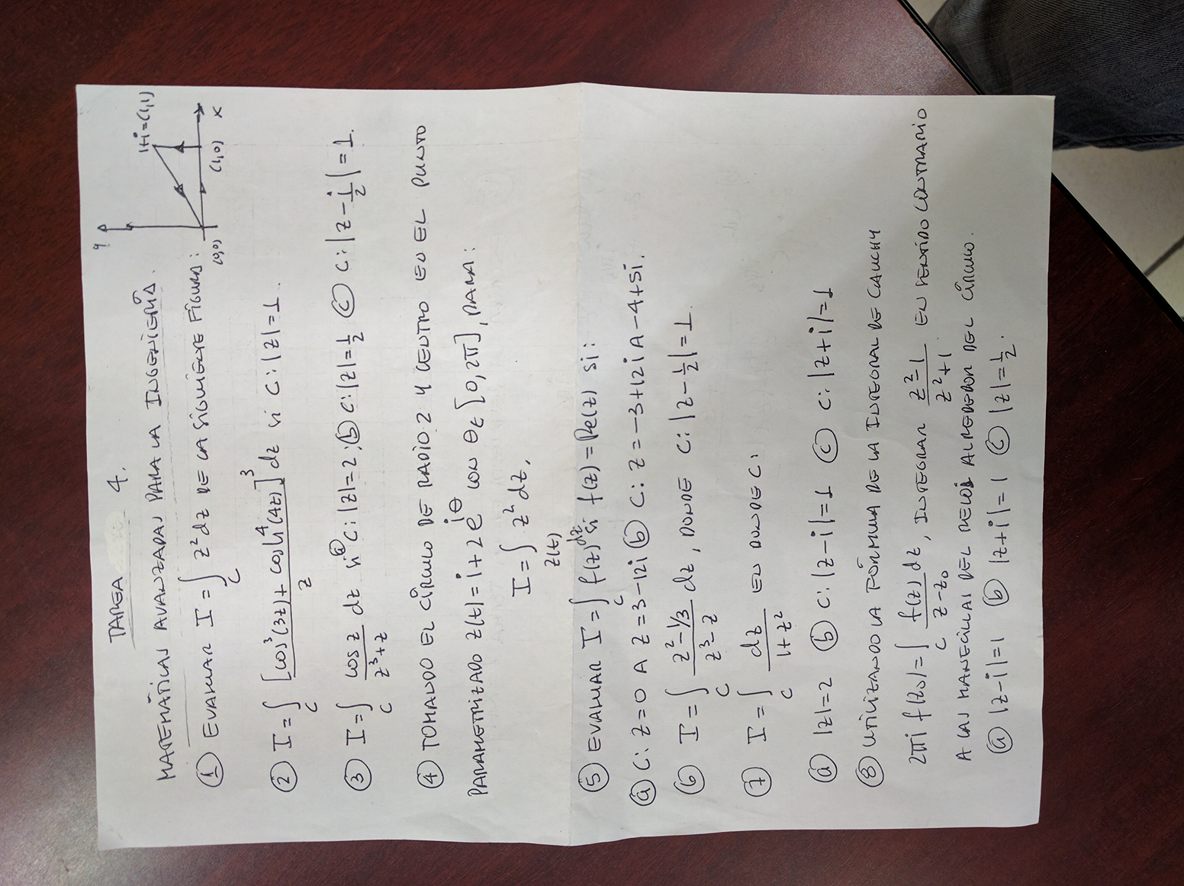 TAREA 4.
MATEMÁTICAS AVANZADAS PARA LA INGENIERÍA.
y
1+i=(1,1)
(0,0) (1,0) x
① EVALUAR I = ∫_C z² dz DE LA SIGUIENTE FIGURA:
② I = ∫_C [cos³(3z) + cosh⁴(4z)]³ / z dz si C: |z| = 1.
③ I = ∫_C cos z / (z³+z) dz si ⓐ C: |z|=2; ⓑ C: |z|=1/2 ⓒ C: |z - i/2| = 1.
④ TOMANDO EL CÍRCULO DE RADIO 2 Y CENTRO EN EL PUNTO
PARAMETRIZADO z(t) = i + 2e^{iθ} CON θ ∈ [0, 2π], PARA:
I = ∫_{z(t)} z² dz.
⑤ EVALUAR I = ∫_C f(z) dz si f(z) = Re(z) si:
ⓐ C: z=0 A z=3-12i ⓑ C: z=-3+12i A -4+5i.
⑥ I = ∫_C (z² - 1/3) / (z³ - z) dz, DONDE C: |z - 1/2| = 1.
⑦ I = ∫_C dz / (1+z²) EN DONDE C:
ⓐ |z|=2 ⓑ C: |z-i|=1 ⓒ C: |z+i|=1
⑧ UTILIZANDO LA FÓRMULA DE LA INTEGRAL DE CAUCHY
2πi f(z₀) = ∫_C f(z) dz / (z-z₀), INTEGRAR (z²-1) / (z²+1) EN SENTIDO CONTRARIO
A LAS MANECILLAS DEL RELOJ ALREDEDOR DEL CÍRCULO.
ⓐ |z-i|=1 ⓑ |z+i|=1 ⓒ |z|=1/2.